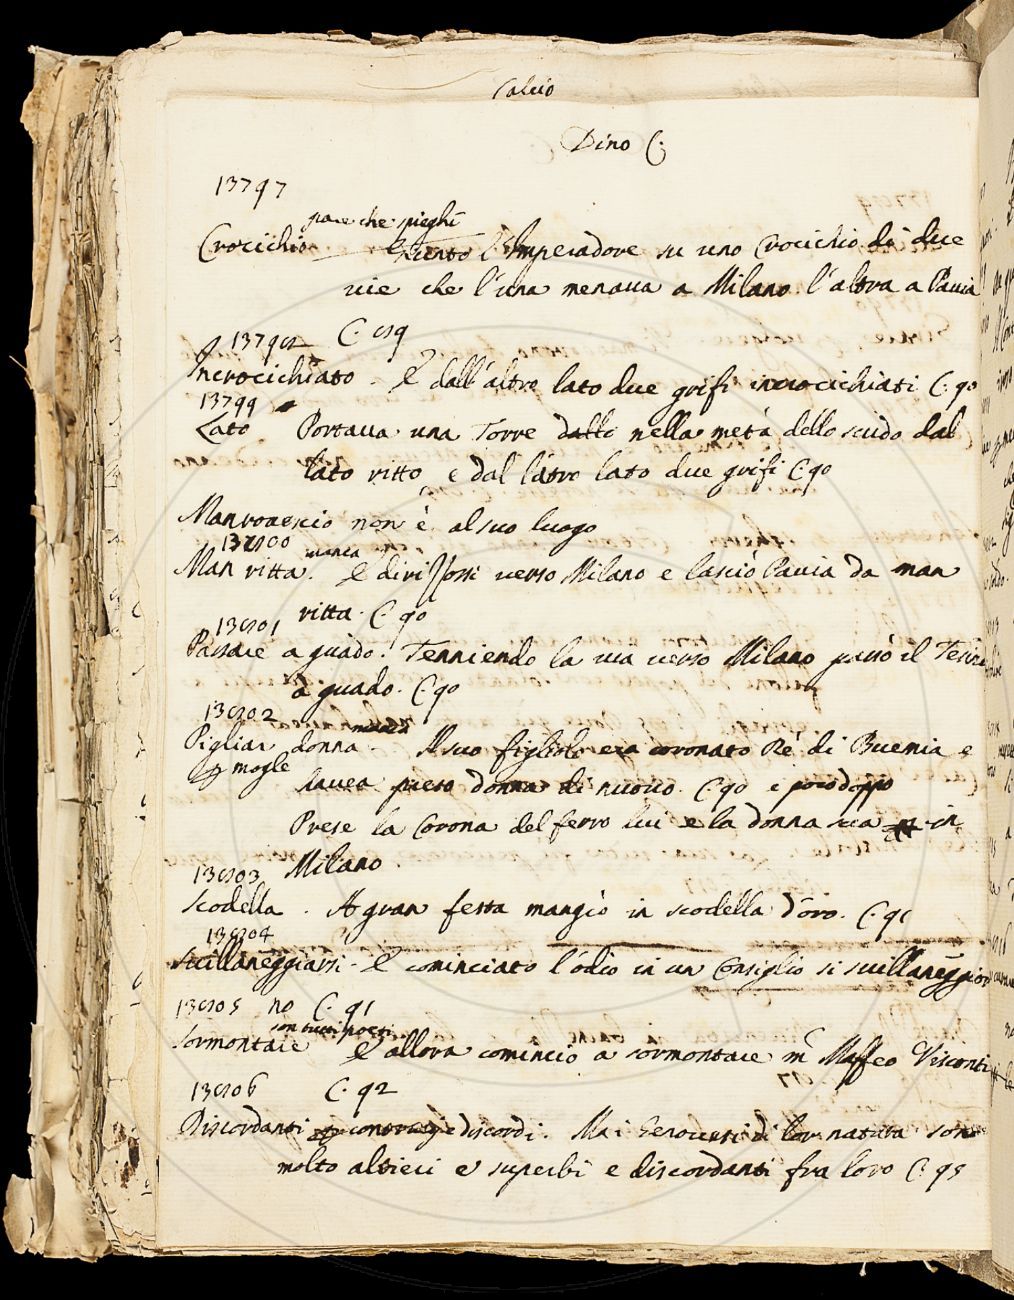 Calcio
Dino C.
13797
pare che pieghi
Crocichio Giunto l'Imperadore su uno Crocichio di due
vie che l'una menava a Milano l'altra a Pavia
13798 C. 89
Incrocichiato. E dall'altro lato due grifi incrocichiati C. 90
13799
Lato Portava una Torre dallo nella metà dello scudo dal
lato ritto, e dal latro lato due grifi C. 90
Manrovescio non è al suo luogo
13800 manca
Man ritta. E dirizzossi verso Milano e lasciò Pavia da man
ritta. C. 90
13801
Passare a guado. Tenniendo la via verso Milano passò il Tesino
a guado. C. 90
13802
Pigliar donna. Il suo figliolo era coronato Re di Buemia e
p mogle havea preso donna di nuovo. C. 90 e poco doppo
Prese la Corona del ferro lui e la donna sua in
Milano.
13803
Scodella. A gran festa mangiò in scodella d'oro. C. 91
13804
Svillaneggiarsi. E cominciato l'odio in un Consiglio si svillaneggioro
13805 no C. 91
son tutti posti
Sormontare E allora cominciò a sormontare mr Maffeo Visconti
13806 C. 92
Discordanti discordi. Ma i Genovesi di lor natura son
molto altieri e superbi e discordanti fra loro C. 95